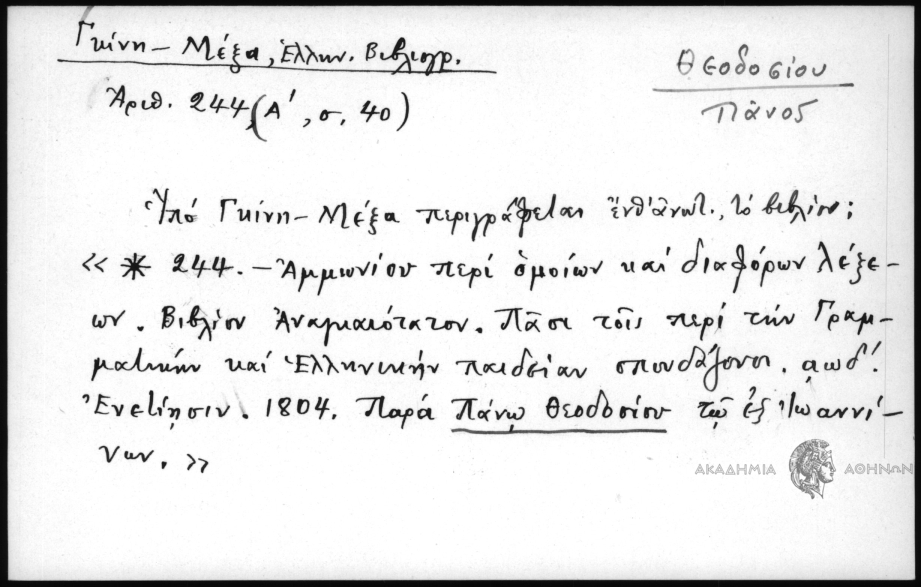 Γκίνη – Μέξα, Ἑλλην. Βιβλιογρ.
Ἀριθ. 244, (Α΄, σ. 40)
Θεοδοσίου
Πᾶνος
Ὑπό Γκίνη – Μέξα περιγράφεται ἐνθ' ἀνωτ., τό βιβλίον;
« * 244. – Ἀμμωνίου περί ὁμοίων καί διαφόρων λέξε–
ων. Βιβλίον Ἀναγκαιότατον. Πᾶσι τοῖς περί τήν Γραμ–
ματικήν καί Ἑλληνικήν παιδείαν σπουδάζουσι. αωδ΄.
Ἐνετίῃσιν. 1804. Παρά Πάνῳ Θεοδοσίου τῷ ἐξ Ἰωαννί–
νων. »
ΑΚΑΔΗΜΙΑ ΑΘΗΝΩΝ